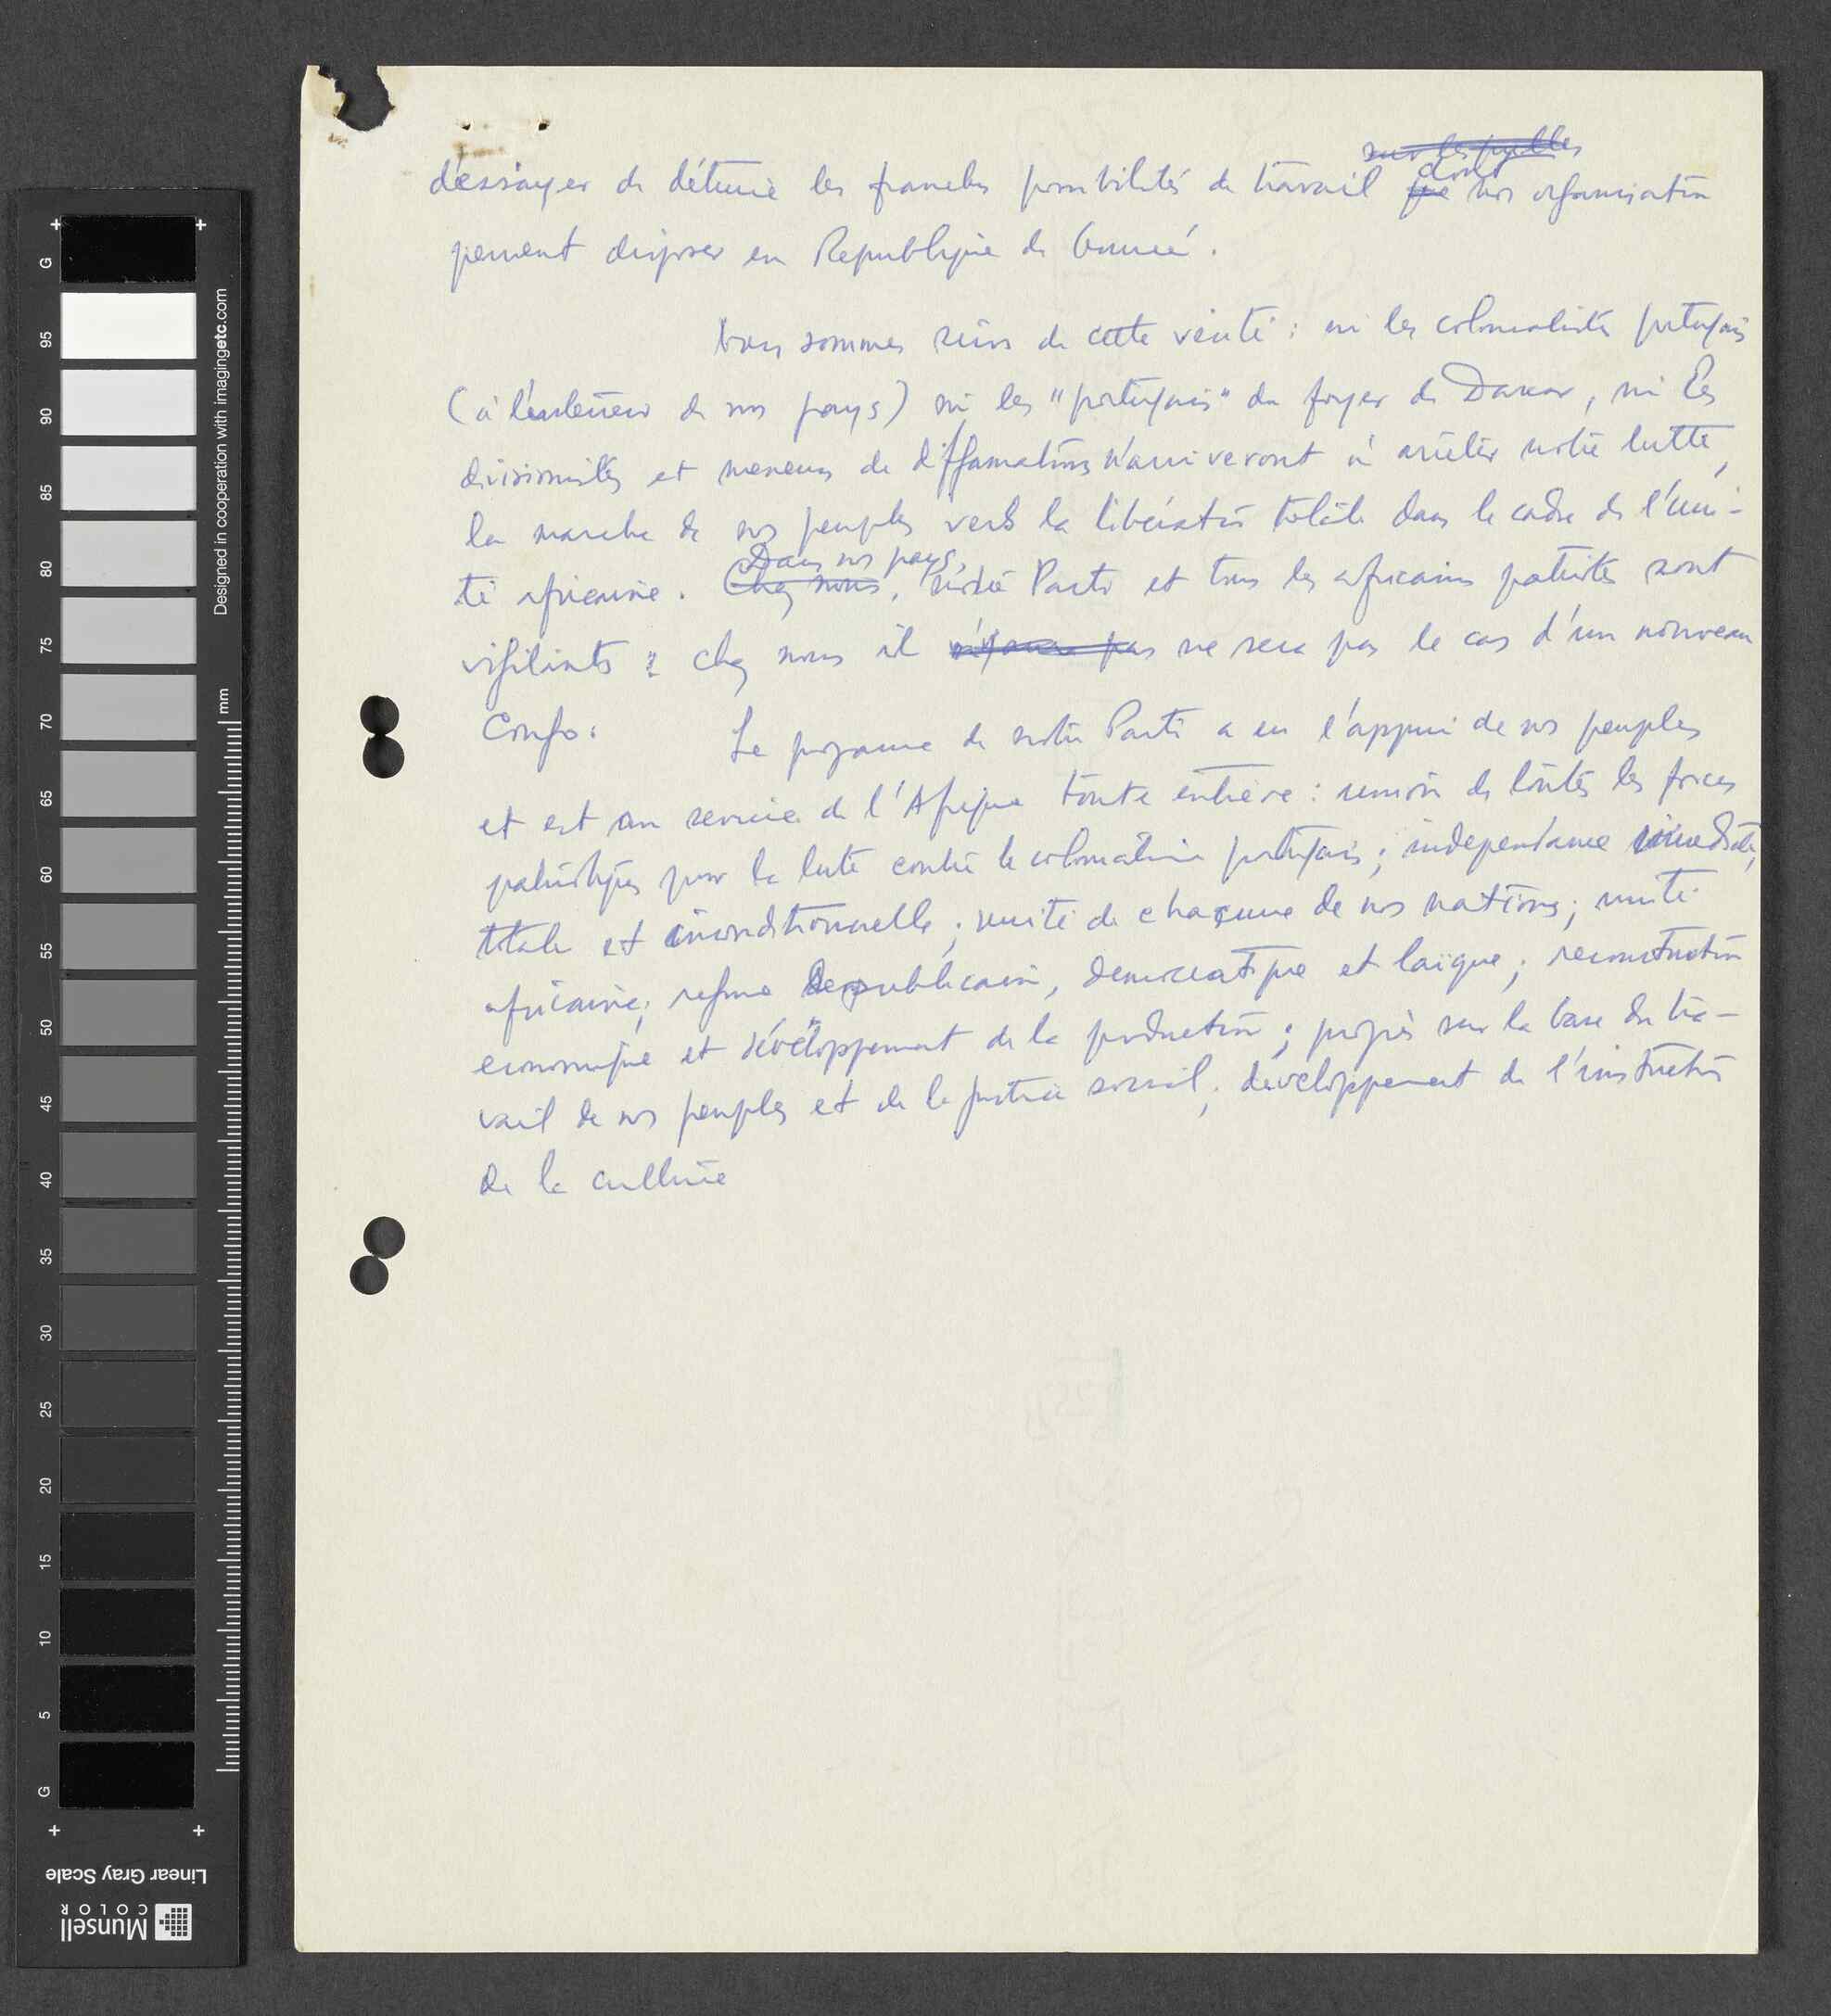 d'essayer de détruire les franches possibilités de travail dont nos organisation
peuvent disposer en Republique de Guineé.
Nous sommes sûrs de cette vérité : ni les colonialistes portugais
(à l'extérieur de nos pays) ni les "portugais" du foyer de Dakar, ni les
divisionistes et meneurs de diffamations n'arriveront à arrêter notre lutte,
la marche de nos peuples vers la libération totale dans le cadre de l'uni-
té africaine. Dans nos pays, notre Parti et tous les africains patriotes sont
vigilants : chez nous il ne sera pas le cas d'un nouveau
Congo.
Le programe de notre Parti a eu l'appui de nos peuples
et est au service de l'Afrique toute entière : union de toutes les forces
patriotiques pour la lute contre le colonialisme portugais ; independance immediate,
totale et inconditionnelle ; unité de chacune de nos nations ; unité
africaine ; regime Republicain, democratique et laïque ; reconstruction
economique et développement de la production ; progrès sur la base du tra-
vail de nos peuples et de la justice social ; developpement de l'instruction
de la culture
G
95
90
85
80
75
70
65
60
55
50
45
40
35
30
25
20
15
10
5
G
Designed in cooperation with imagingetc.com
mm
Linear Gray Scale
Munsell
COLOR